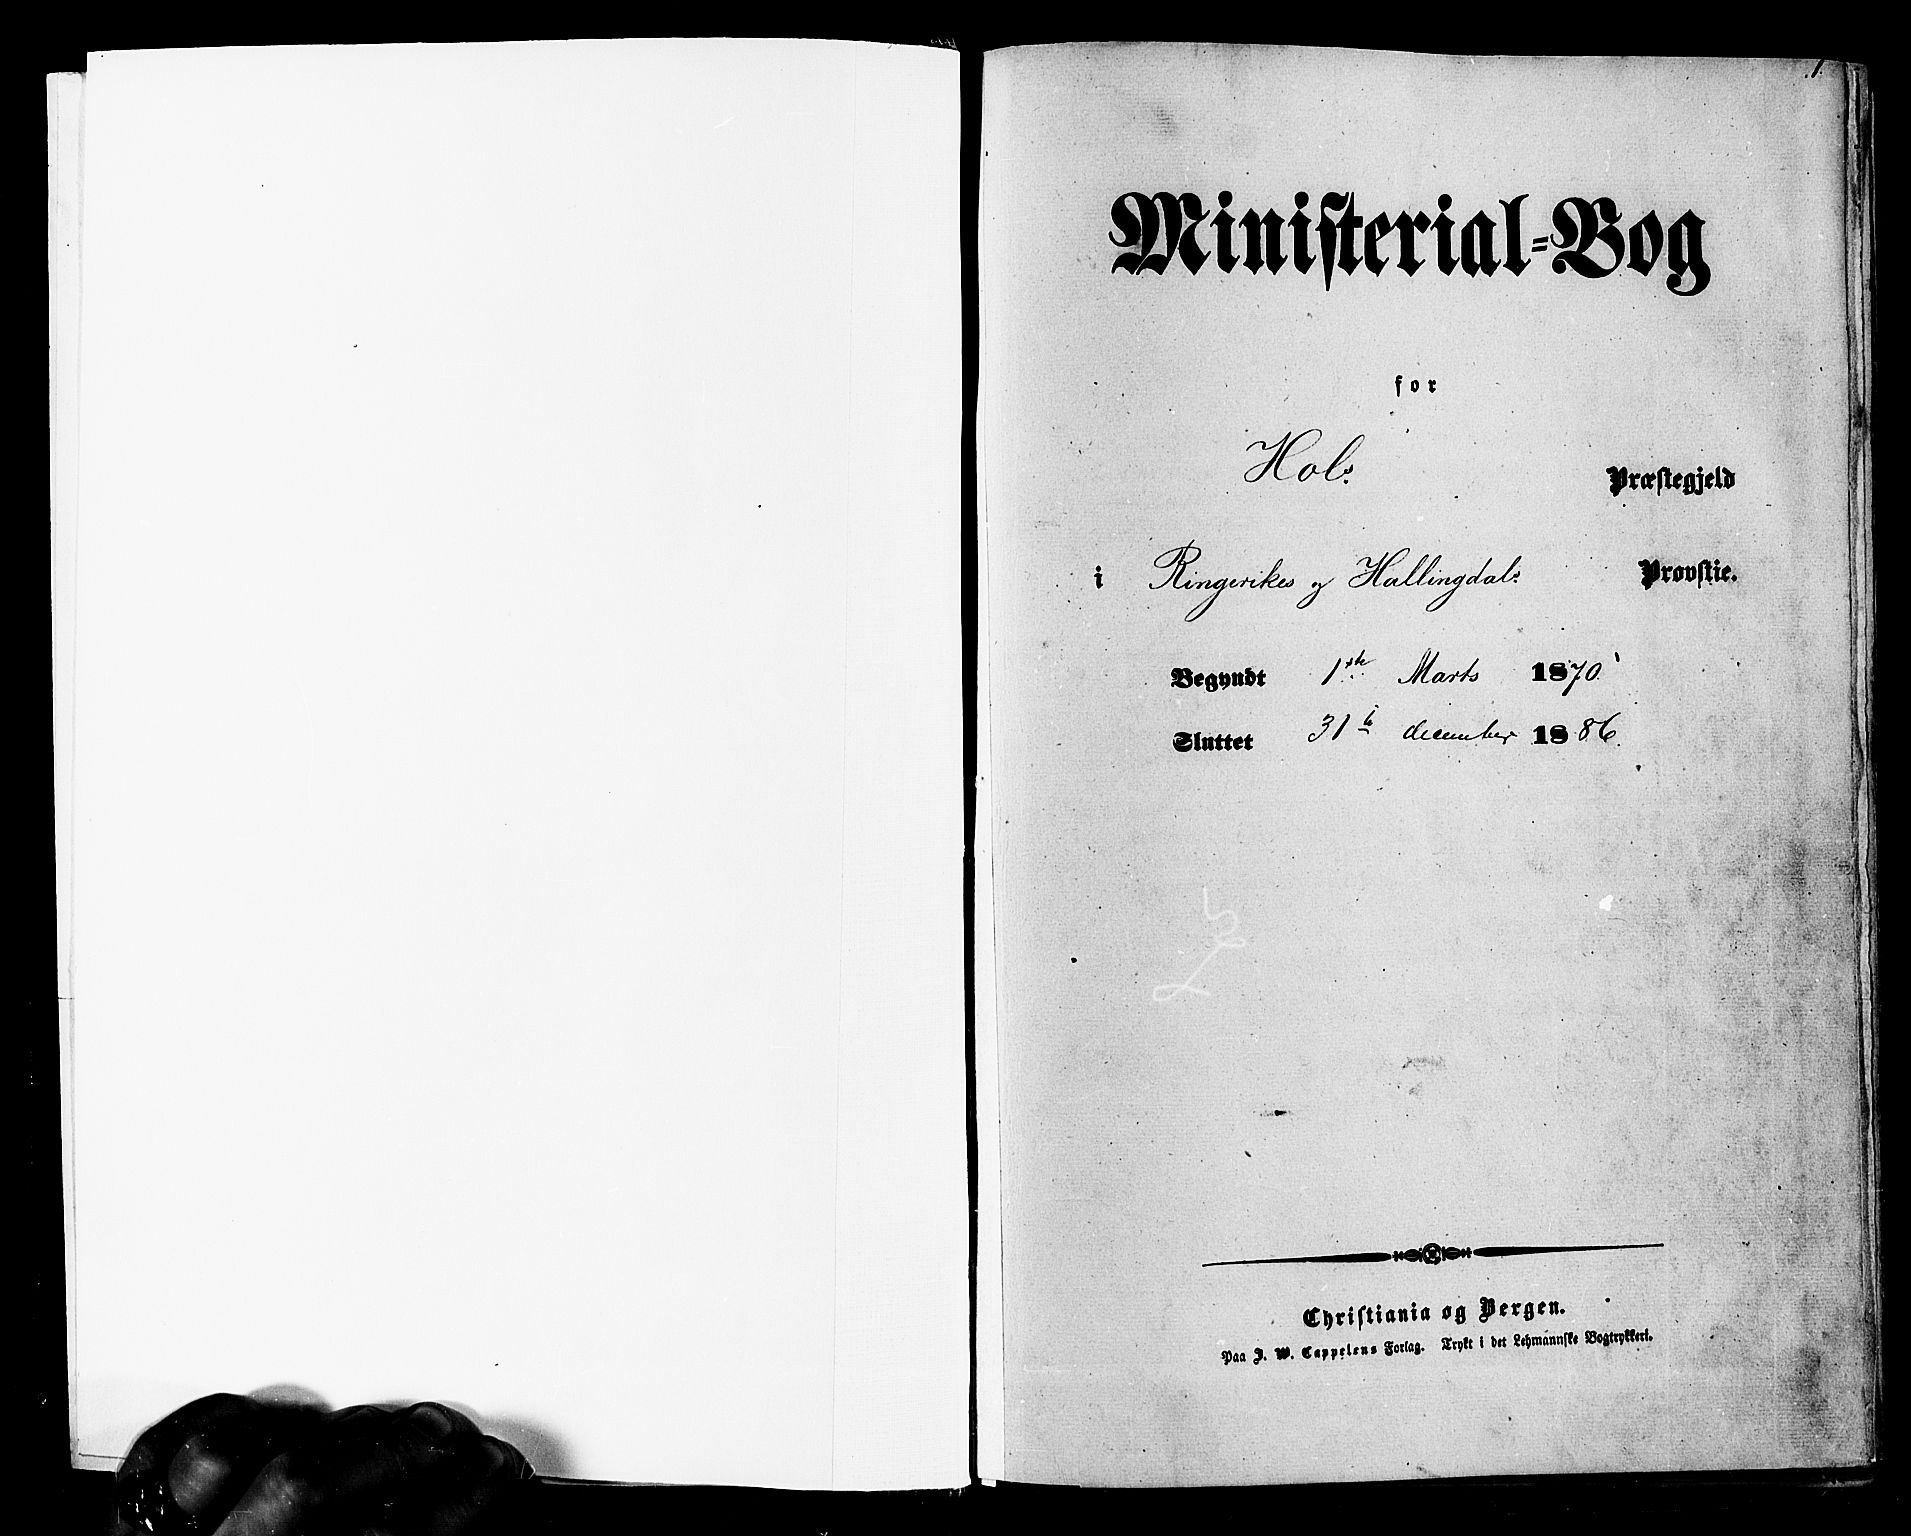 1.
Ministerial-Bog
for
Hols Præstegjeld
i Ringerikes og Hallingdals Provstie.
Begyndt 1ste Marts 1870
Sluttet 31te december 1886.
Christiania og Bergen.
Paa J. W. Cappelens Forlag. Trykt i det Lehmannske Bogtrykkeri.